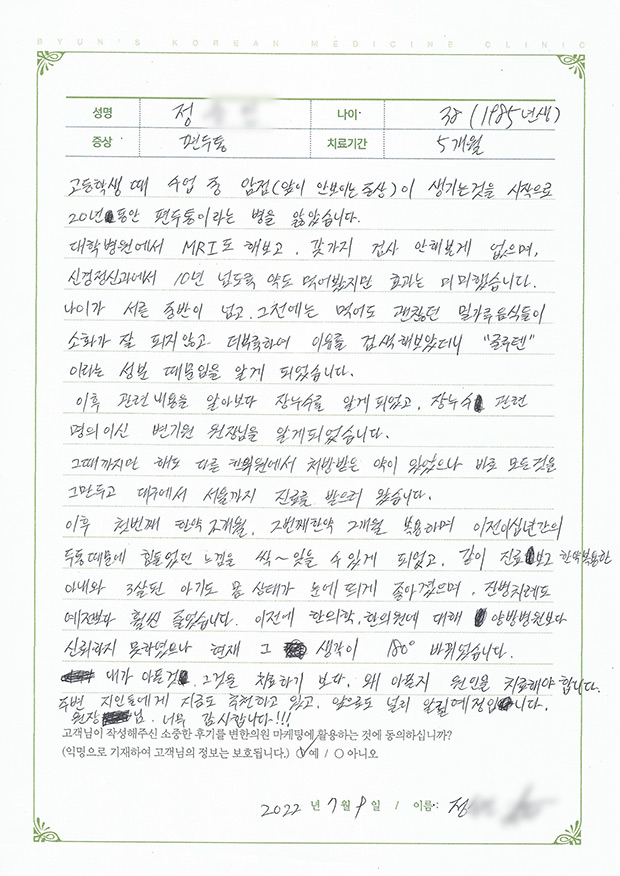 BYUN'S KOREAN MEDICINE CLINIC
성명 정 나이 38 (1985년생)
증상 편두통 치료기간 5개월
고등학생 때 수업 중 암점(앞이 안보이는 증상)이 생기는것을 시작으로
20년 동안 편두통이라는 병을 앓았습니다.
대학병원에서 MRI도 해보고, 갖가지 검사 안해본게 없으며,
신경정신과에서 10년 넘도록 약도 먹어봤지만 효과는 미미했습니다.
나이가 서른 중반이 넘고, 그전에는 먹어도 괜찮던 밀가루음식들이
소화가 잘 되지않고 더부룩하여 이유를 검색해보았더니 "글루텐"
이라는 성분 때문임을 알게 되었습니다.
이후 관련내용을 알아보다 장누수를 알게되었고, 장누수 관련
명의이신 변기원 원장님을 알게되었습니다.
그때까지만 해도 다른 한의원에서 처방받은 약이 있었으나 바로 모든것을
그만두고 대구에서 서울까지 진료를 받으러 왔습니다.
이후 첫번째 한약 2개월, 2번째한약 2개월 복용하며 이전이십년간의
두통때문에 힘들었던 느낌을 싹~ 잊을 수 있게 되었고, 같이 진료보고 한약복용한
아내와 3살된 아기도 몸 상태가 눈에 띄게 좋아졌으며, 잔병치레도
예전보다 훨씬 줄었습니다. 이전에 한의학, 한의원에 대해 양방병원보다
신뢰하지 못하였으나 현재 그 생각이 180° 바뀌었습니다.
내가 아픈것, 그것을 치료하기 보다, 왜 아픈지 원인을 치료해야 합니다.
주변 지인들에게 지금도 추천하고 있고, 앞으로도 널리 알릴예정입니다.
원장님. 너무 감사합니다!!!
고객님이 작성해주신 소중한 후기를 변한의원 마케팅에 활용하는 것에 동의하십니까?
(익명으로 기재하여 고객님의 정보는 보호됩니다.) ○예 / ○아니오
2022 년 7 월 9 일 / 이름: 정